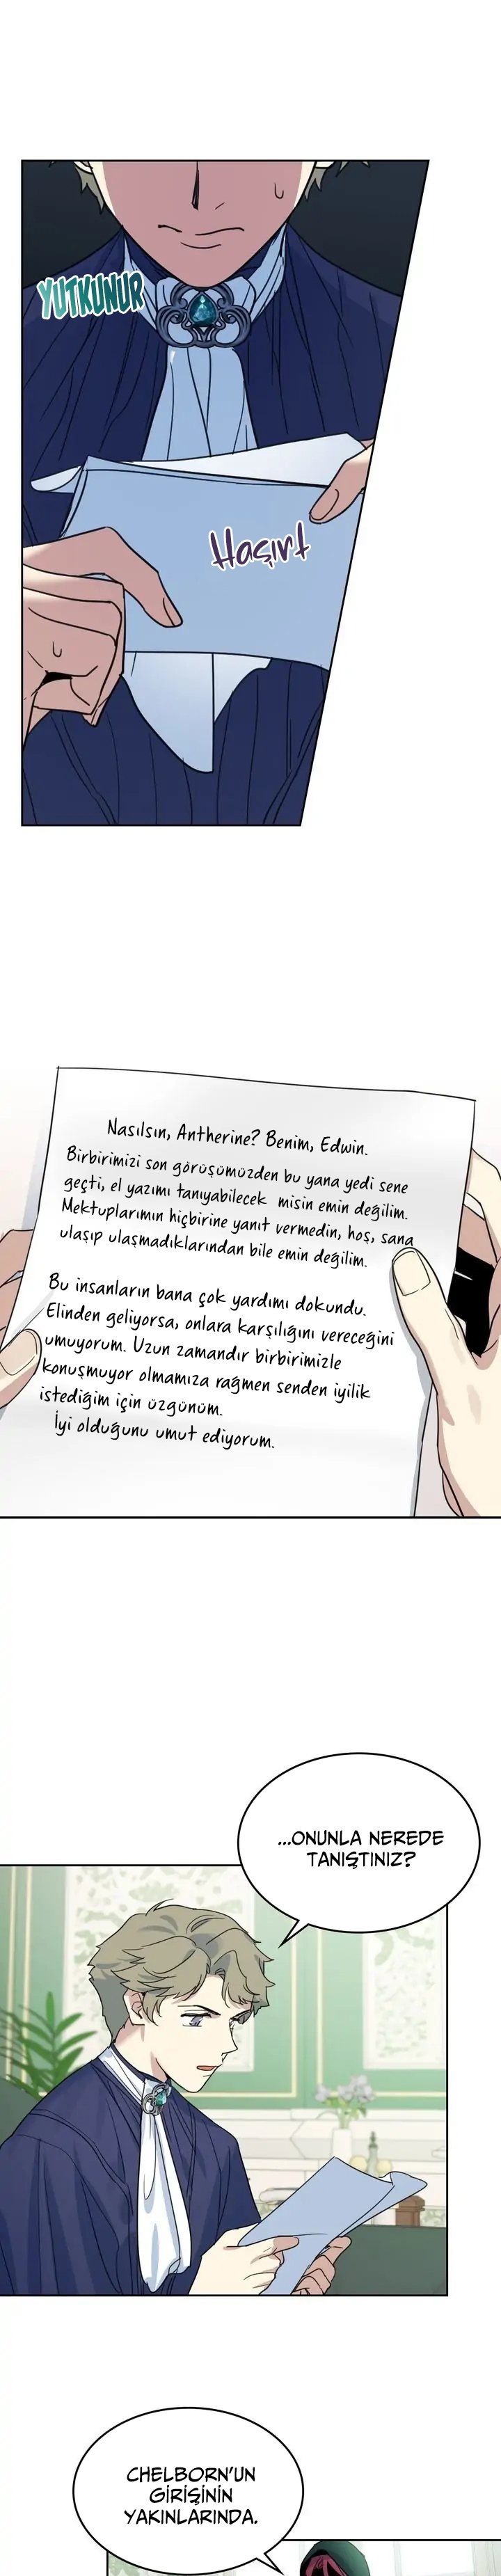 YUTKUNUR
Haşırt
Nasılsın, Antherine? Benim, Edwin.
Birbirimizi son görüşümüzden bu yana yedi sene
geçti, el yazımı tanıyabilecek misin emin değilim.
Mektuplarımın hiçbirine yanıt vermedin, hoş, sana
ulaşıp ulaşmadıklarından bile emin değilim.
Bu insanların bana çok yardımı dokundu.
Elinden geliyorsa, onlara karşılığını vereceğini
umuyorum. Uzun zamandır birbirimizle
konuşmuyor olmamıza rağmen senden iyilik
istediğim için üzgünüm.
İyi olduğunu umut ediyorum.
...ONUNLA NEREDE
TANIŞTINIZ?
CHELBORN'UN
GİRİŞİNİN
YAKINLARINDA.